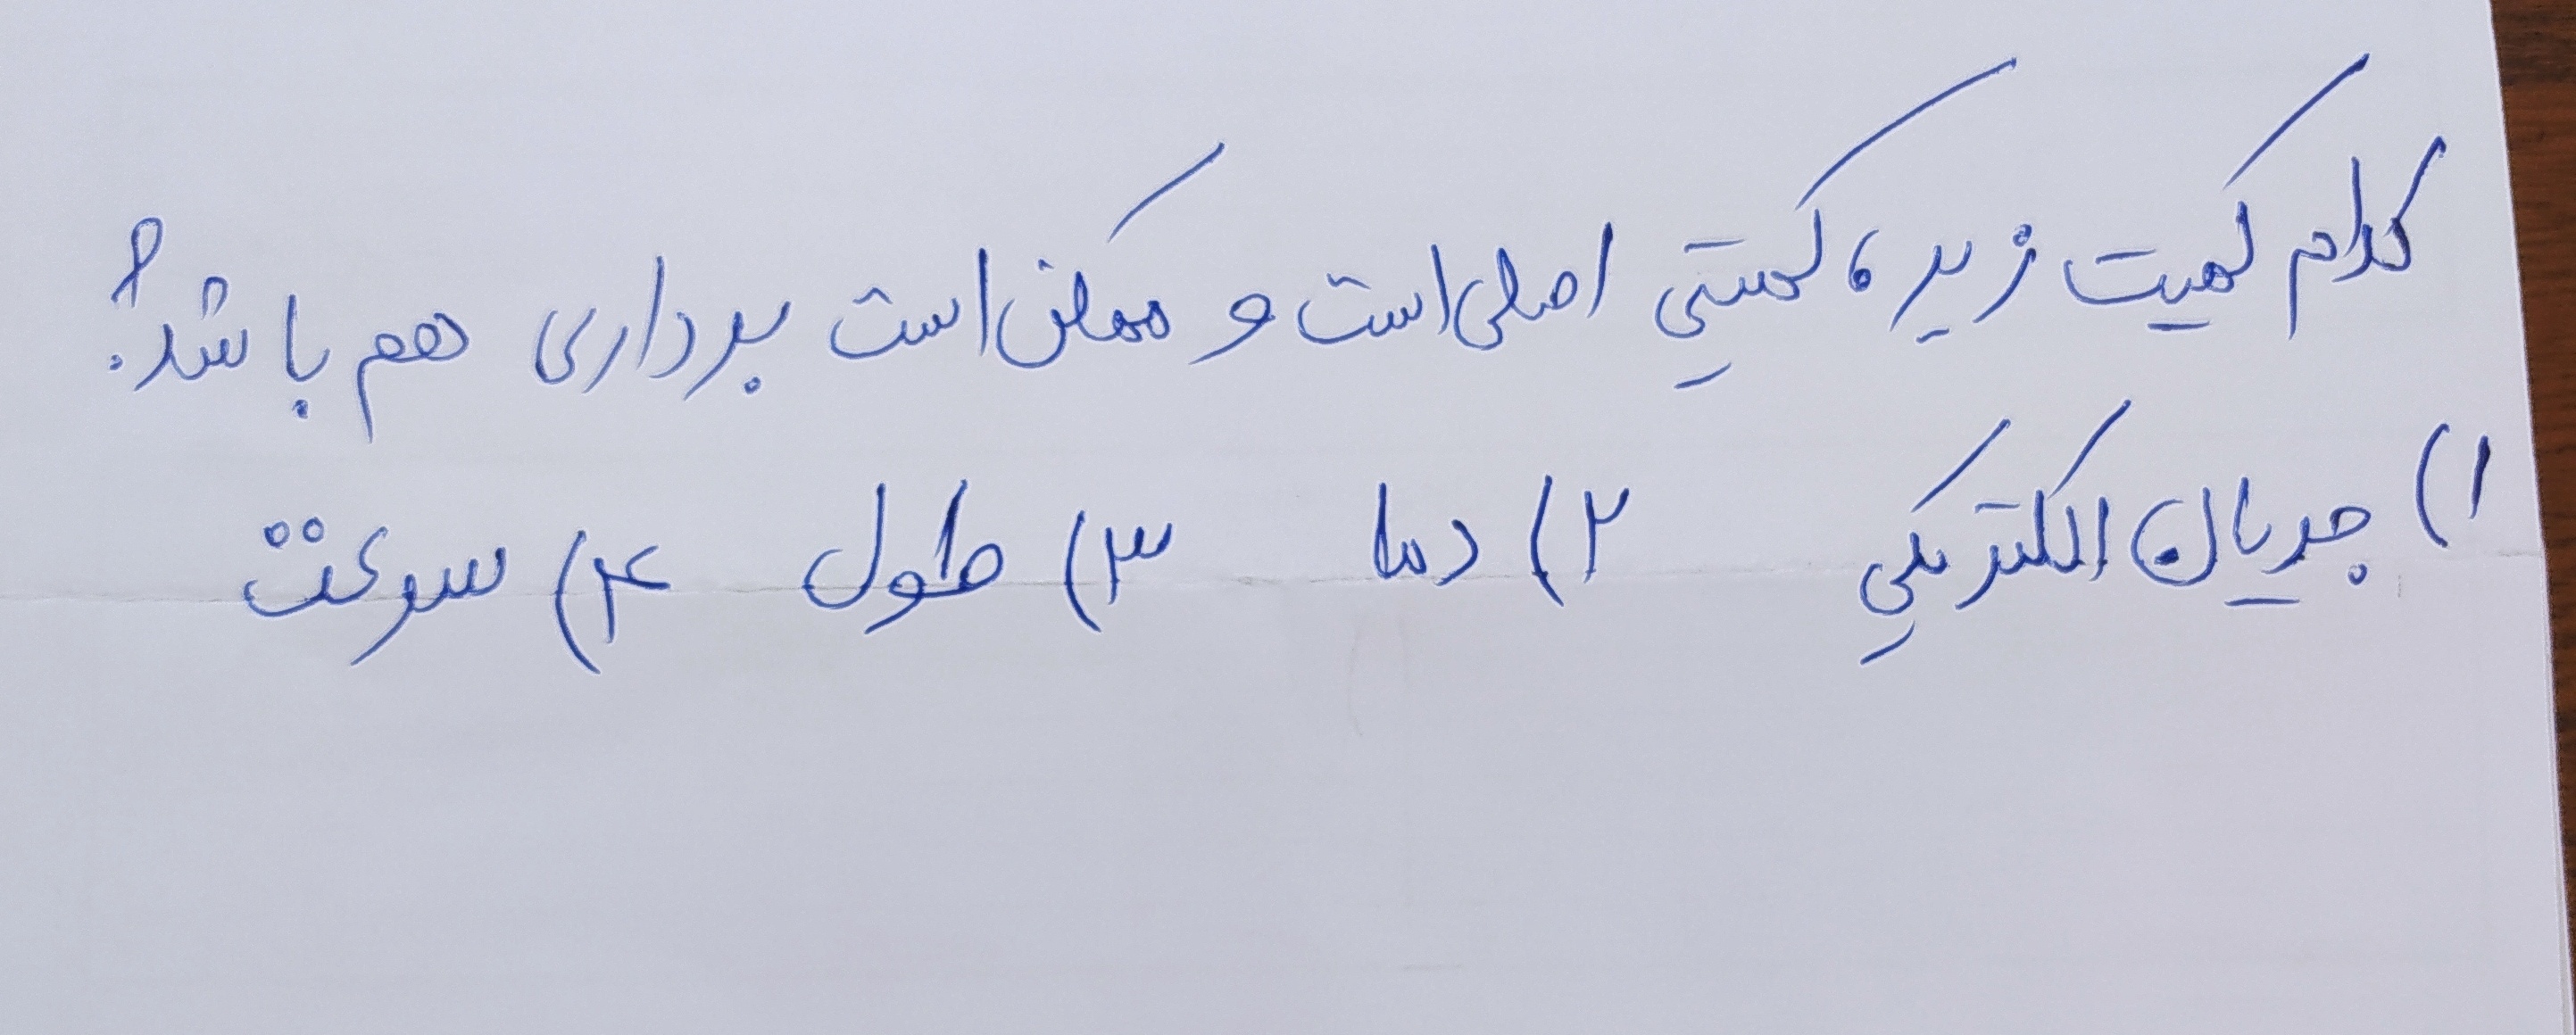 کدام کمیت زیر، کمیتی اصلی است و ممکن است برداری هم باشد؟
۱) جریان الکتریکی ۲) دما ۳) طول ۴) سرعت